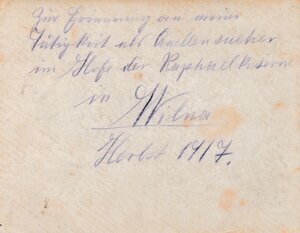 Zur Erinnerung an meine
Tätigkeit als Quellensucher
im Hofe der Raphaelkaserne
in
Wilna
Herbst 1917.